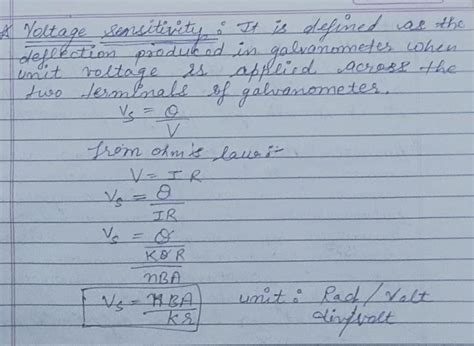 * Voltage sensitivity : It is defined as the
deflection produced in galvanometer when
unit voltage is applied across the
two terminals of galvanometer.
Vs = θ/V
from ohm's law :-
V = IR
Vs = θ/IR
Vs = θ/(KθR/nBA)
Vs = nBA/KR unit : Rad/Volt
div/volt